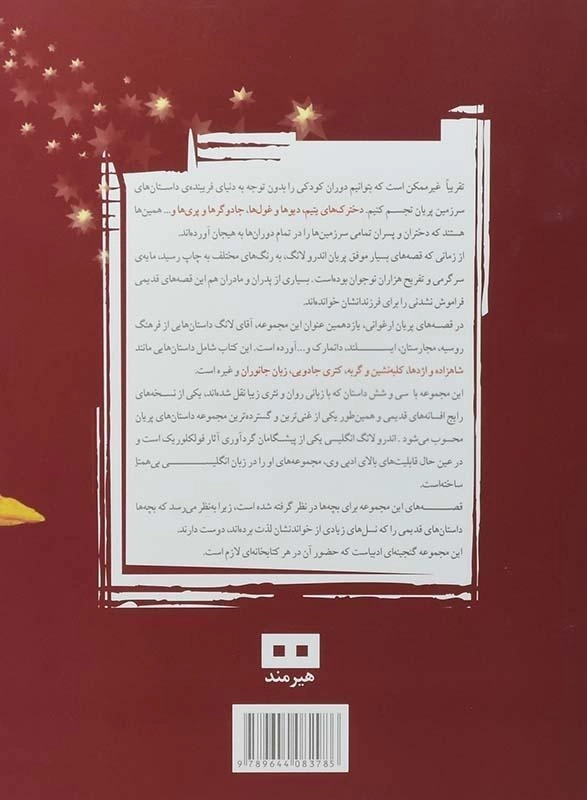 تقریباً غیرممکن است که بتوانیم دوران کودکی را بدون توجه به دنیای فریبنده‌ی داستان‌های
سرزمین پریان تجسم کنیم. دخترک‌های یتیم، دیوها و غول‌ها، جادوگرها و پری‌ها و... همین‌ها
هستند که دختران و پسران تمامی سرزمین‌ها را در تمام دوران‌ها به هیجان آورده‌اند.
از زمانی که قصه‌های بسیار موفق پریان اندرو لانگ، به رنگ‌های مختلف به چاپ رسید، مایه‌ی
سرگرمی و تفریح هزاران نوجوان بوده‌است. بسیاری از پدران و مادران هم این قصه‌های قدیمی
فراموش نشدنی را برای فرزندانشان خوانده‌اند.
در قصه‌های پریان ارغوانی، یازدهمین عنوان این مجموعه، آقای لانگ داستان‌هایی از فرهنگ
روسیه، مجارستان، ایسلند، دانمارک و...آورده است. این کتاب شامل داستان‌هایی مانند
شاهزاده و اژدها، کلبه‌نشین و گربه، کتری جادویی، زبان جانوران و غیره است.
این مجموعه با سی و شش داستان که با زبانی روان و نثری زیبا نقل شده‌اند، یکی از نسخه‌های
رایج افسانه‌های قدیمی و همین‌طور یکی از غنی‌ترین و گسترده‌ترین مجموعه داستان‌های پریان
محسوب می‌شود. اندرو لانگ انگلیسی یکی از پیشگامان گردآوری آثار فولکلوریک است و
در عین حال قابلیت‌های بالای ادبی وی، مجموعه‌های او را در زبان انگلیسی بی‌همتا
ساخته‌است.
قصه‌های این مجموعه برای بچه‌ها در نظر گرفته شده است، زیرا به‌نظر می‌رسد که بچه‌ها
داستان‌های قدیمی را که نسل‌های زیادی از خواندنشان لذت برده‌اند، دوست دارند.
این مجموعه گنجینه‌ای ادبیاست که حضور آن در هر کتابخانه‌ای لازم است.
هیرمند
9 789644 083785